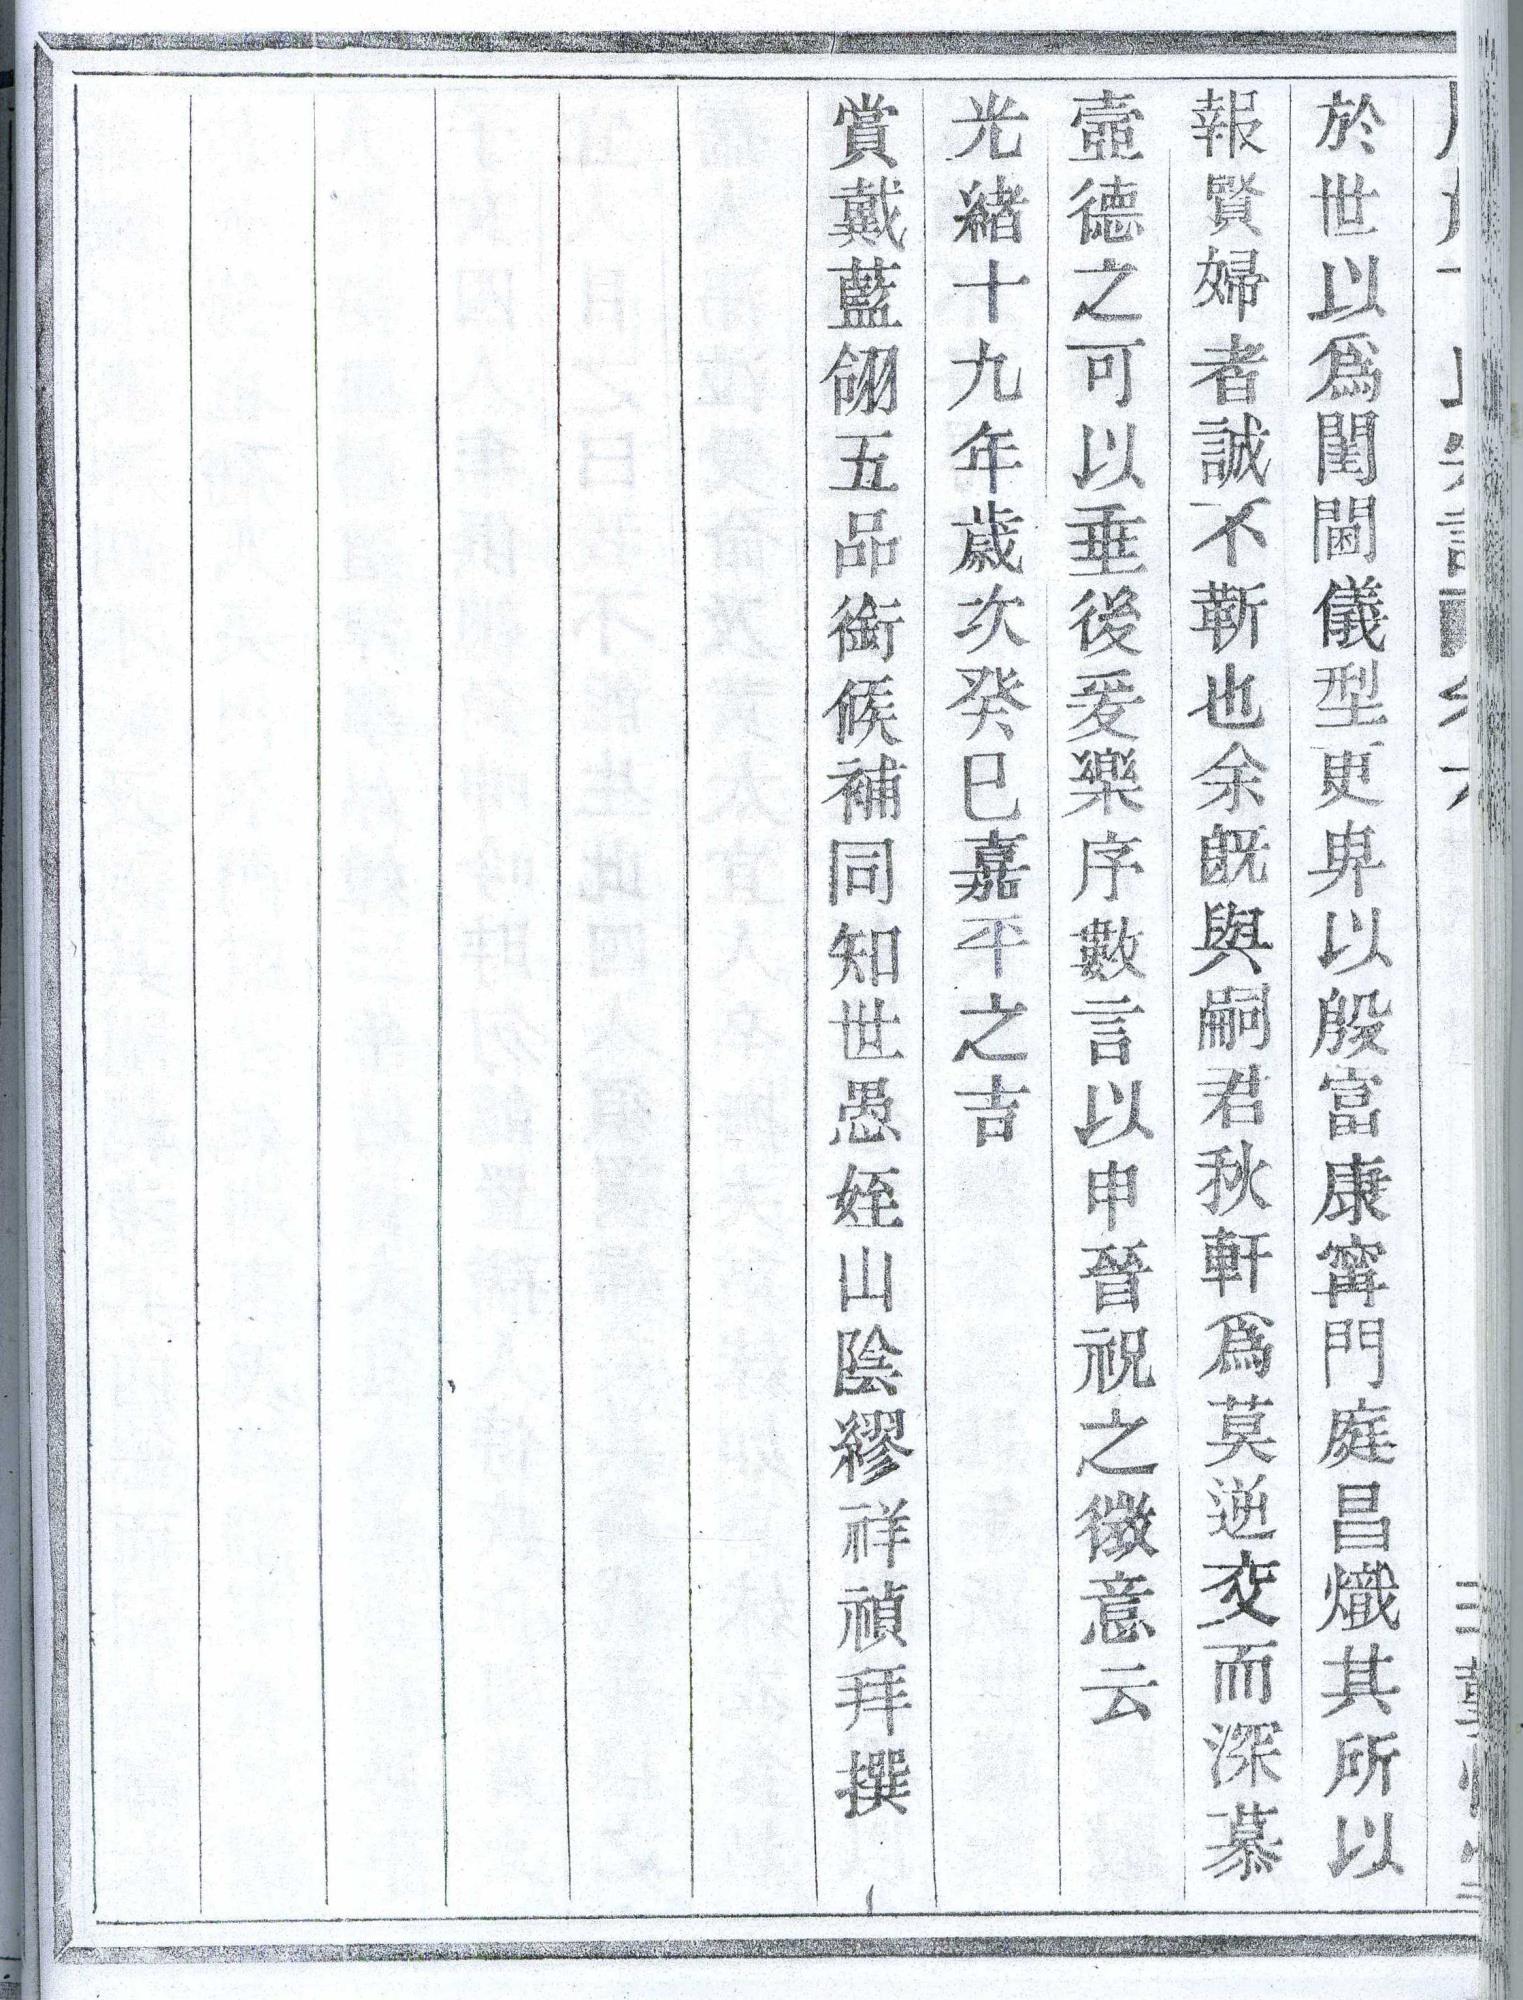 於世以爲閨閫儀型更卑以殷富康寗門庭昌熾其所以
報賢婦者誠不靳也余旣與嗣君秋軒爲莫逆交而深慕
壼德之可以垂後爰樂序數言以申晉祝之微意云
光緒十九年歲次癸巳嘉平之吉
賞戴藍翎五品銜候補同知世愚姪山陰繆祥禎拜撰